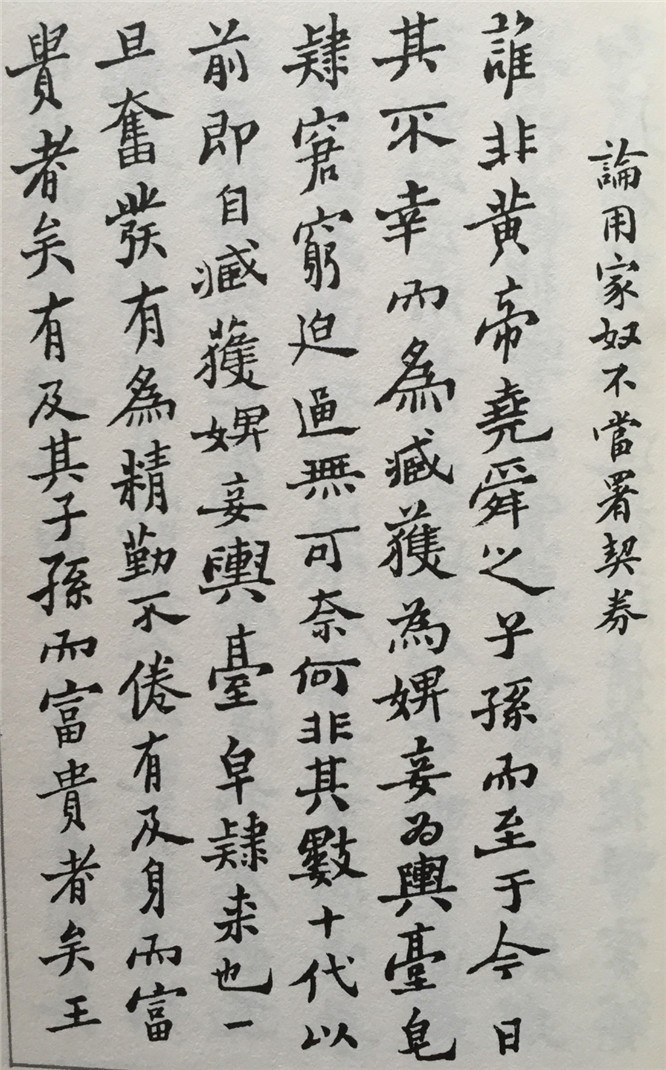 論用家奴不當署契券
誰非黃帝堯舜之子孫而至于今日
其不幸而為臧獲為婢妾為輿臺皂
隸窘窮迫逼無可奈何非其數十代以
前即自臧獲婢妾輿臺皁隸來也一
旦奮發有為精勤不倦有及身而富
貴者矣有及其子孫而富貴者矣王